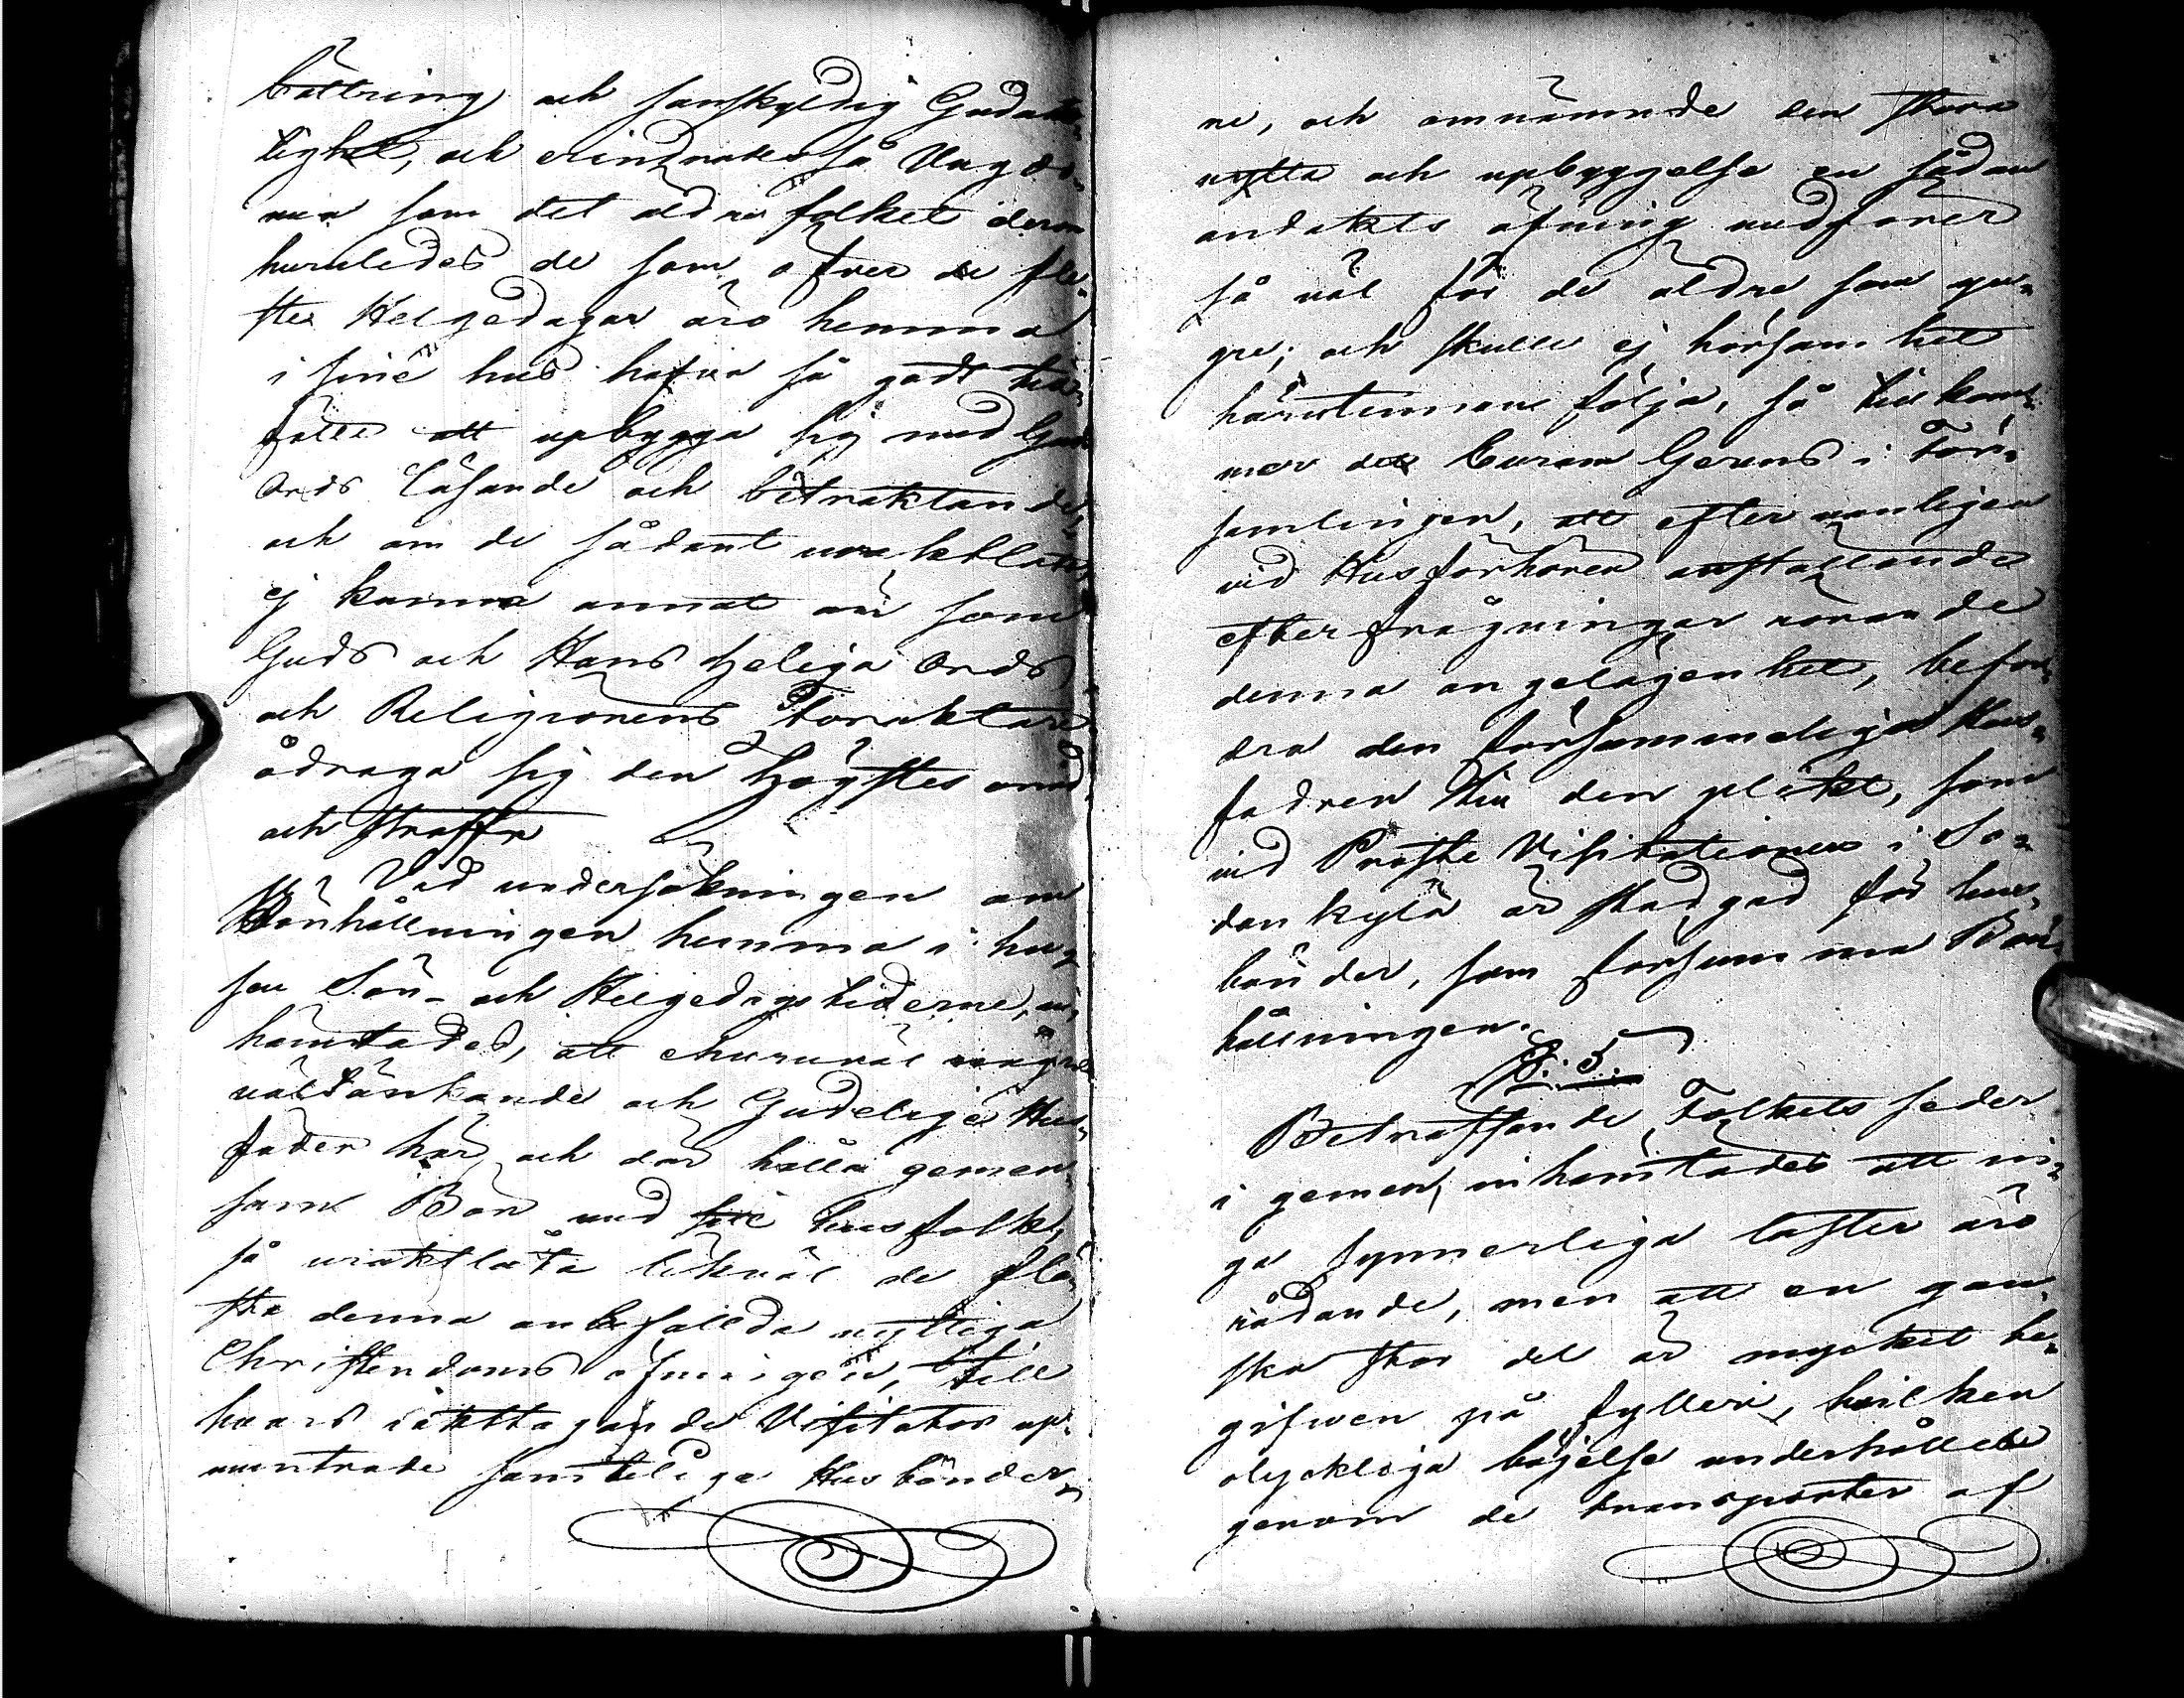 bättring och sanskyldig Gudak-
tighet, och erindrades så Ungdo-
men som det äldre folket derom
huruledes de som öfver de fle-
ste Helgedagar äro hemma
i sine hus hafva så godt till-
fälle att upbygga sig med Guds
Ords läsande och betraktande,
och om de sådant uraktlåta,
ej kunna annat än som
Guds och Hans heliga Ords
och Religionens föraktare
ådraga sig den Högstes onåd
och straff.
Vid undersökningen om
Bönhållningen hemma i hu-
sen Sön- och Helgedags tiderne, in-
hämtades, att ehuruväl några
väl tänkande och Gudelige Hus-
fäder här och där hålla gemen-
sam Bön med sitt husfolk,
så uraktlåta likväl de flä-
sta denna anbefallda nyttiga
Christendoms öfningen, till
hvars iakttagande Visitator up-
muntrade samtelige Husbönder-
ne, och omnämnde den stora
nytta och upbyggelse en sådan
andakts öfning medförer
så väl för de äldre som yn-
gre; och skulle ej hörsamhet
härutinnan följa, så tillkom-
mer det Curam Gerens i För-
samlingen, att efter vanligen
vid Husförhören anställande
efterfrågningar rörande
denna angelägenhet, befor-
dra den försummeliga Hus-
fadren till den plikt, som
vid Proste Visitationen i So-
dankylä är stadgad för hus-
bönder, som försumma Bön-
hållningen.
§. 5.
Beträffande Folkets seder
i gemen, inhämtades att in-
ga synnerliga laster äro
rådande, men att en gan-
ska stor del är mycket be-
gifven på fylleri, hvilken
olyckliga böjelse underhålles
genom de transporter af